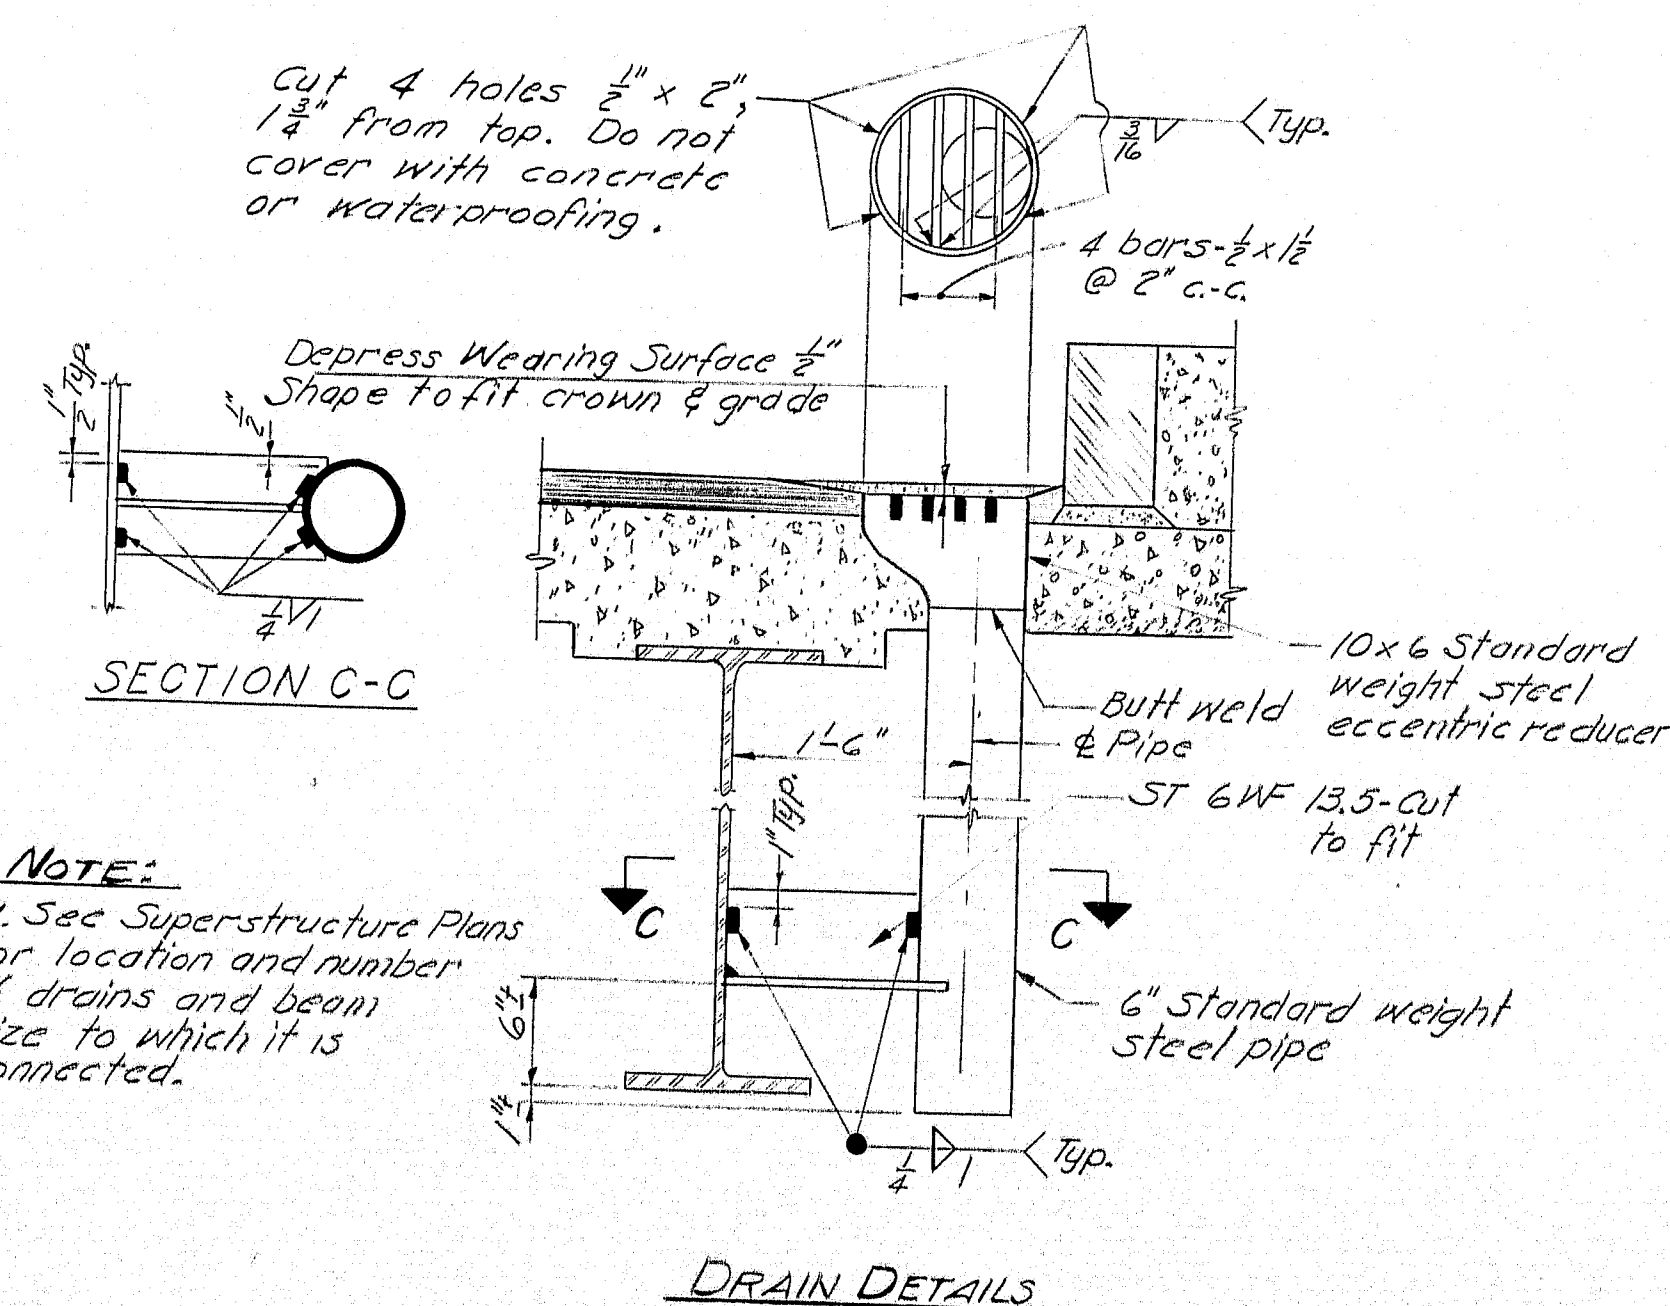 Cut 4 holes 1/2" x 2",
1 3/4" from top. Do not
cover with concrete
or waterproofing.
3/16
Typ.
4 bars-1/2 x 1 1/2
@ 2" c.-c.
Depress Wearing Surface 1/2"
Shape to fit crown & grade
1/2" Typ.
1/2"
1/4 1
SECTION C-C
10x6 Standard
weight steel
eccentric reducer
Butt weld
℄ Pipe
1'-6"
1" Typ.
ST 6 WF 13.5-Cut
to fit
C
C
NOTE:
1. See Superstructure Plans
or location and number
drains and beam
ize to which it is
onnected.
6"±
1"±
6" Standard weight
steel pipe
1/4 1 Typ.
DRAIN DETAILS